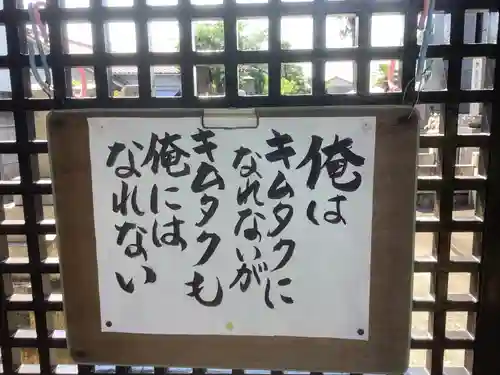 俺は
キムタクに
なれないが
キムタクも
俺には
なれない